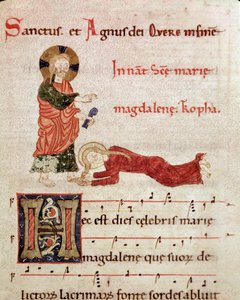 Sanctus. et Agnus dei Quere in fine
In nāt sēe marie
magdalene. Ropha.
Hec est dies celebris marie
magdalene que suor de
lictorum lacrimarum fonte sordes abluit